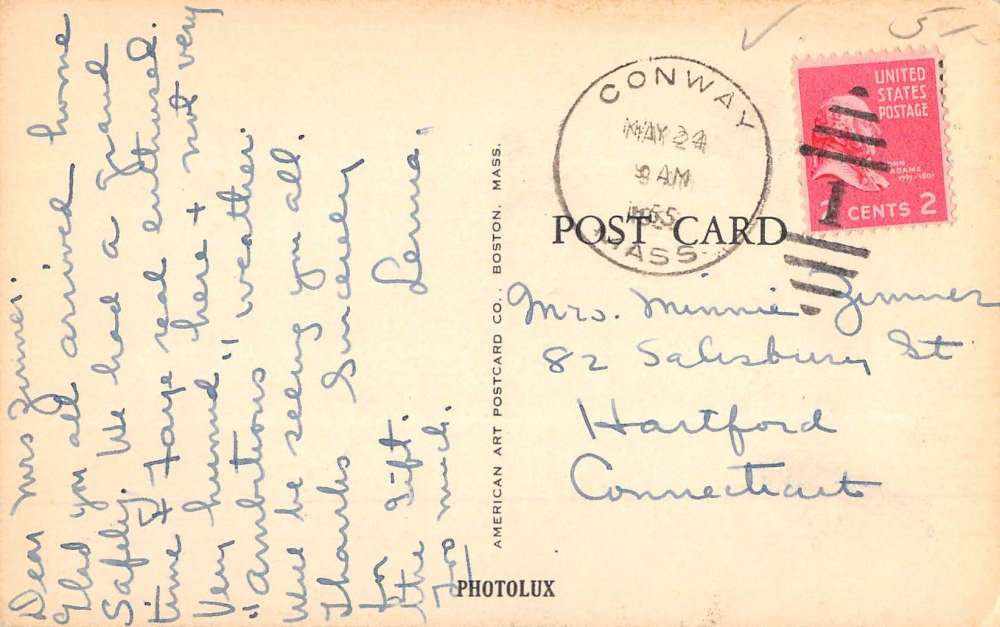 Dear Mrs Zimner.
Glad you all arrived home
Safely. We had a grand
time & Faye real enthused.
Very humid here + not very
"Ambitious" weather.
Will be seeing you all.
Thanks Sincerely
for Lena.
the Gift.
Too much.
AMERICAN ART POSTCARD CO., BOSTON, MASS.
PHOTOLUX
CONWAY
MAY 24
9 AM
1955
MASS.
UNITED
STATES
POSTAGE
JOHN
ADAMS
1797-1801
2 CENTS 2
1
51
POST CARD
Mrs. Minnie Zimner
82 Salisbury St
Hartford
Connecticut